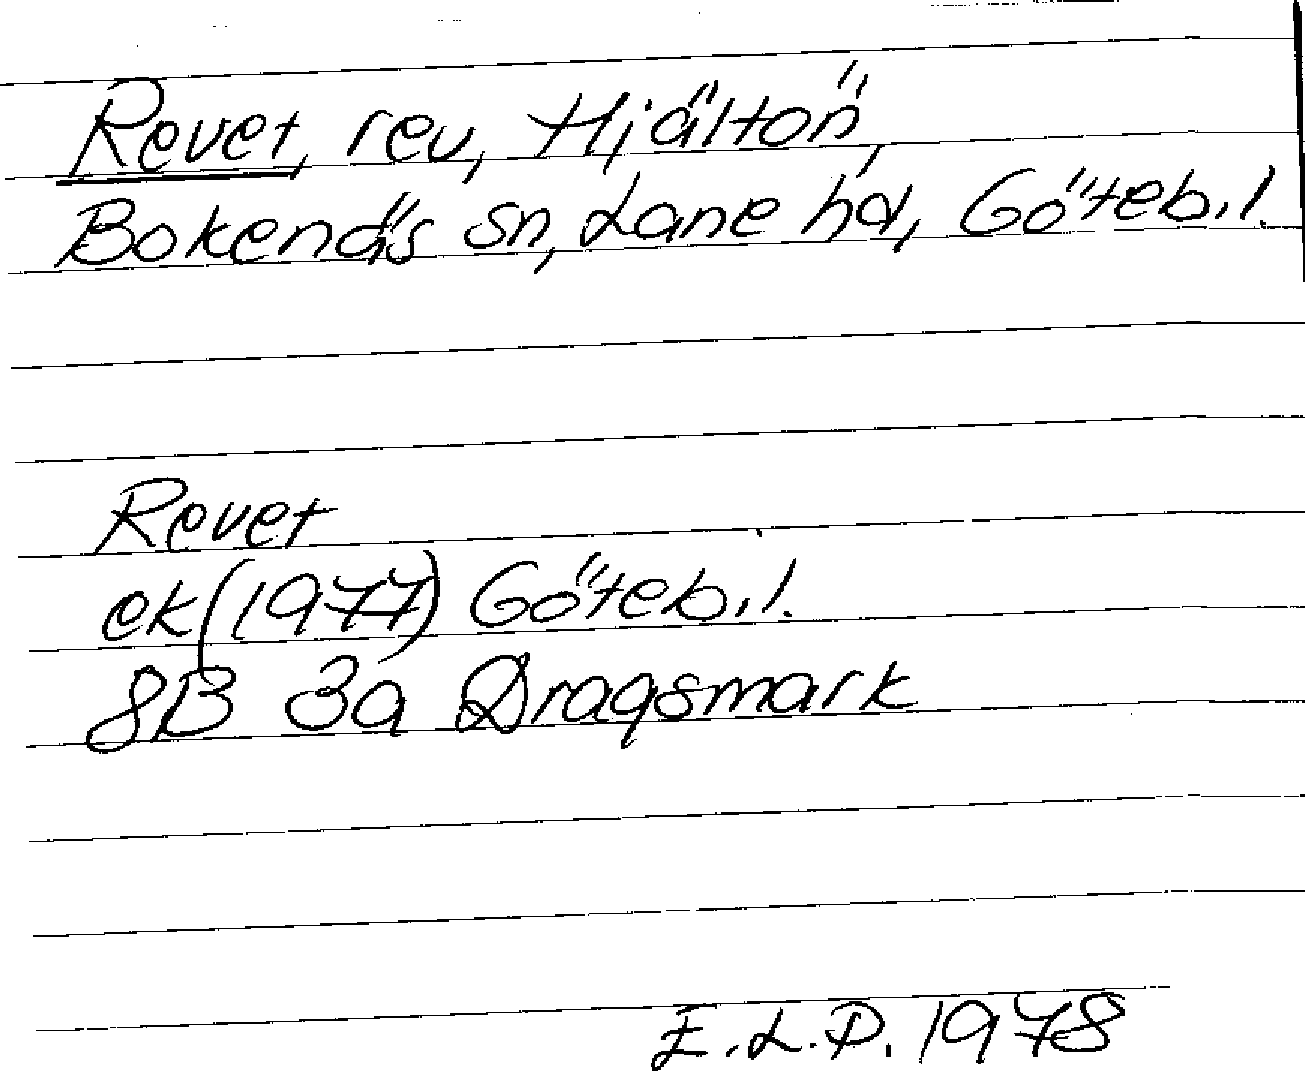 Revet, rev, Hjältön,
Bokenäs sn, Lane hd, Göteb.l.
Revet
ek (1977) Göteb.l.
8B 3a Dragsmark
E.L.P. 1978